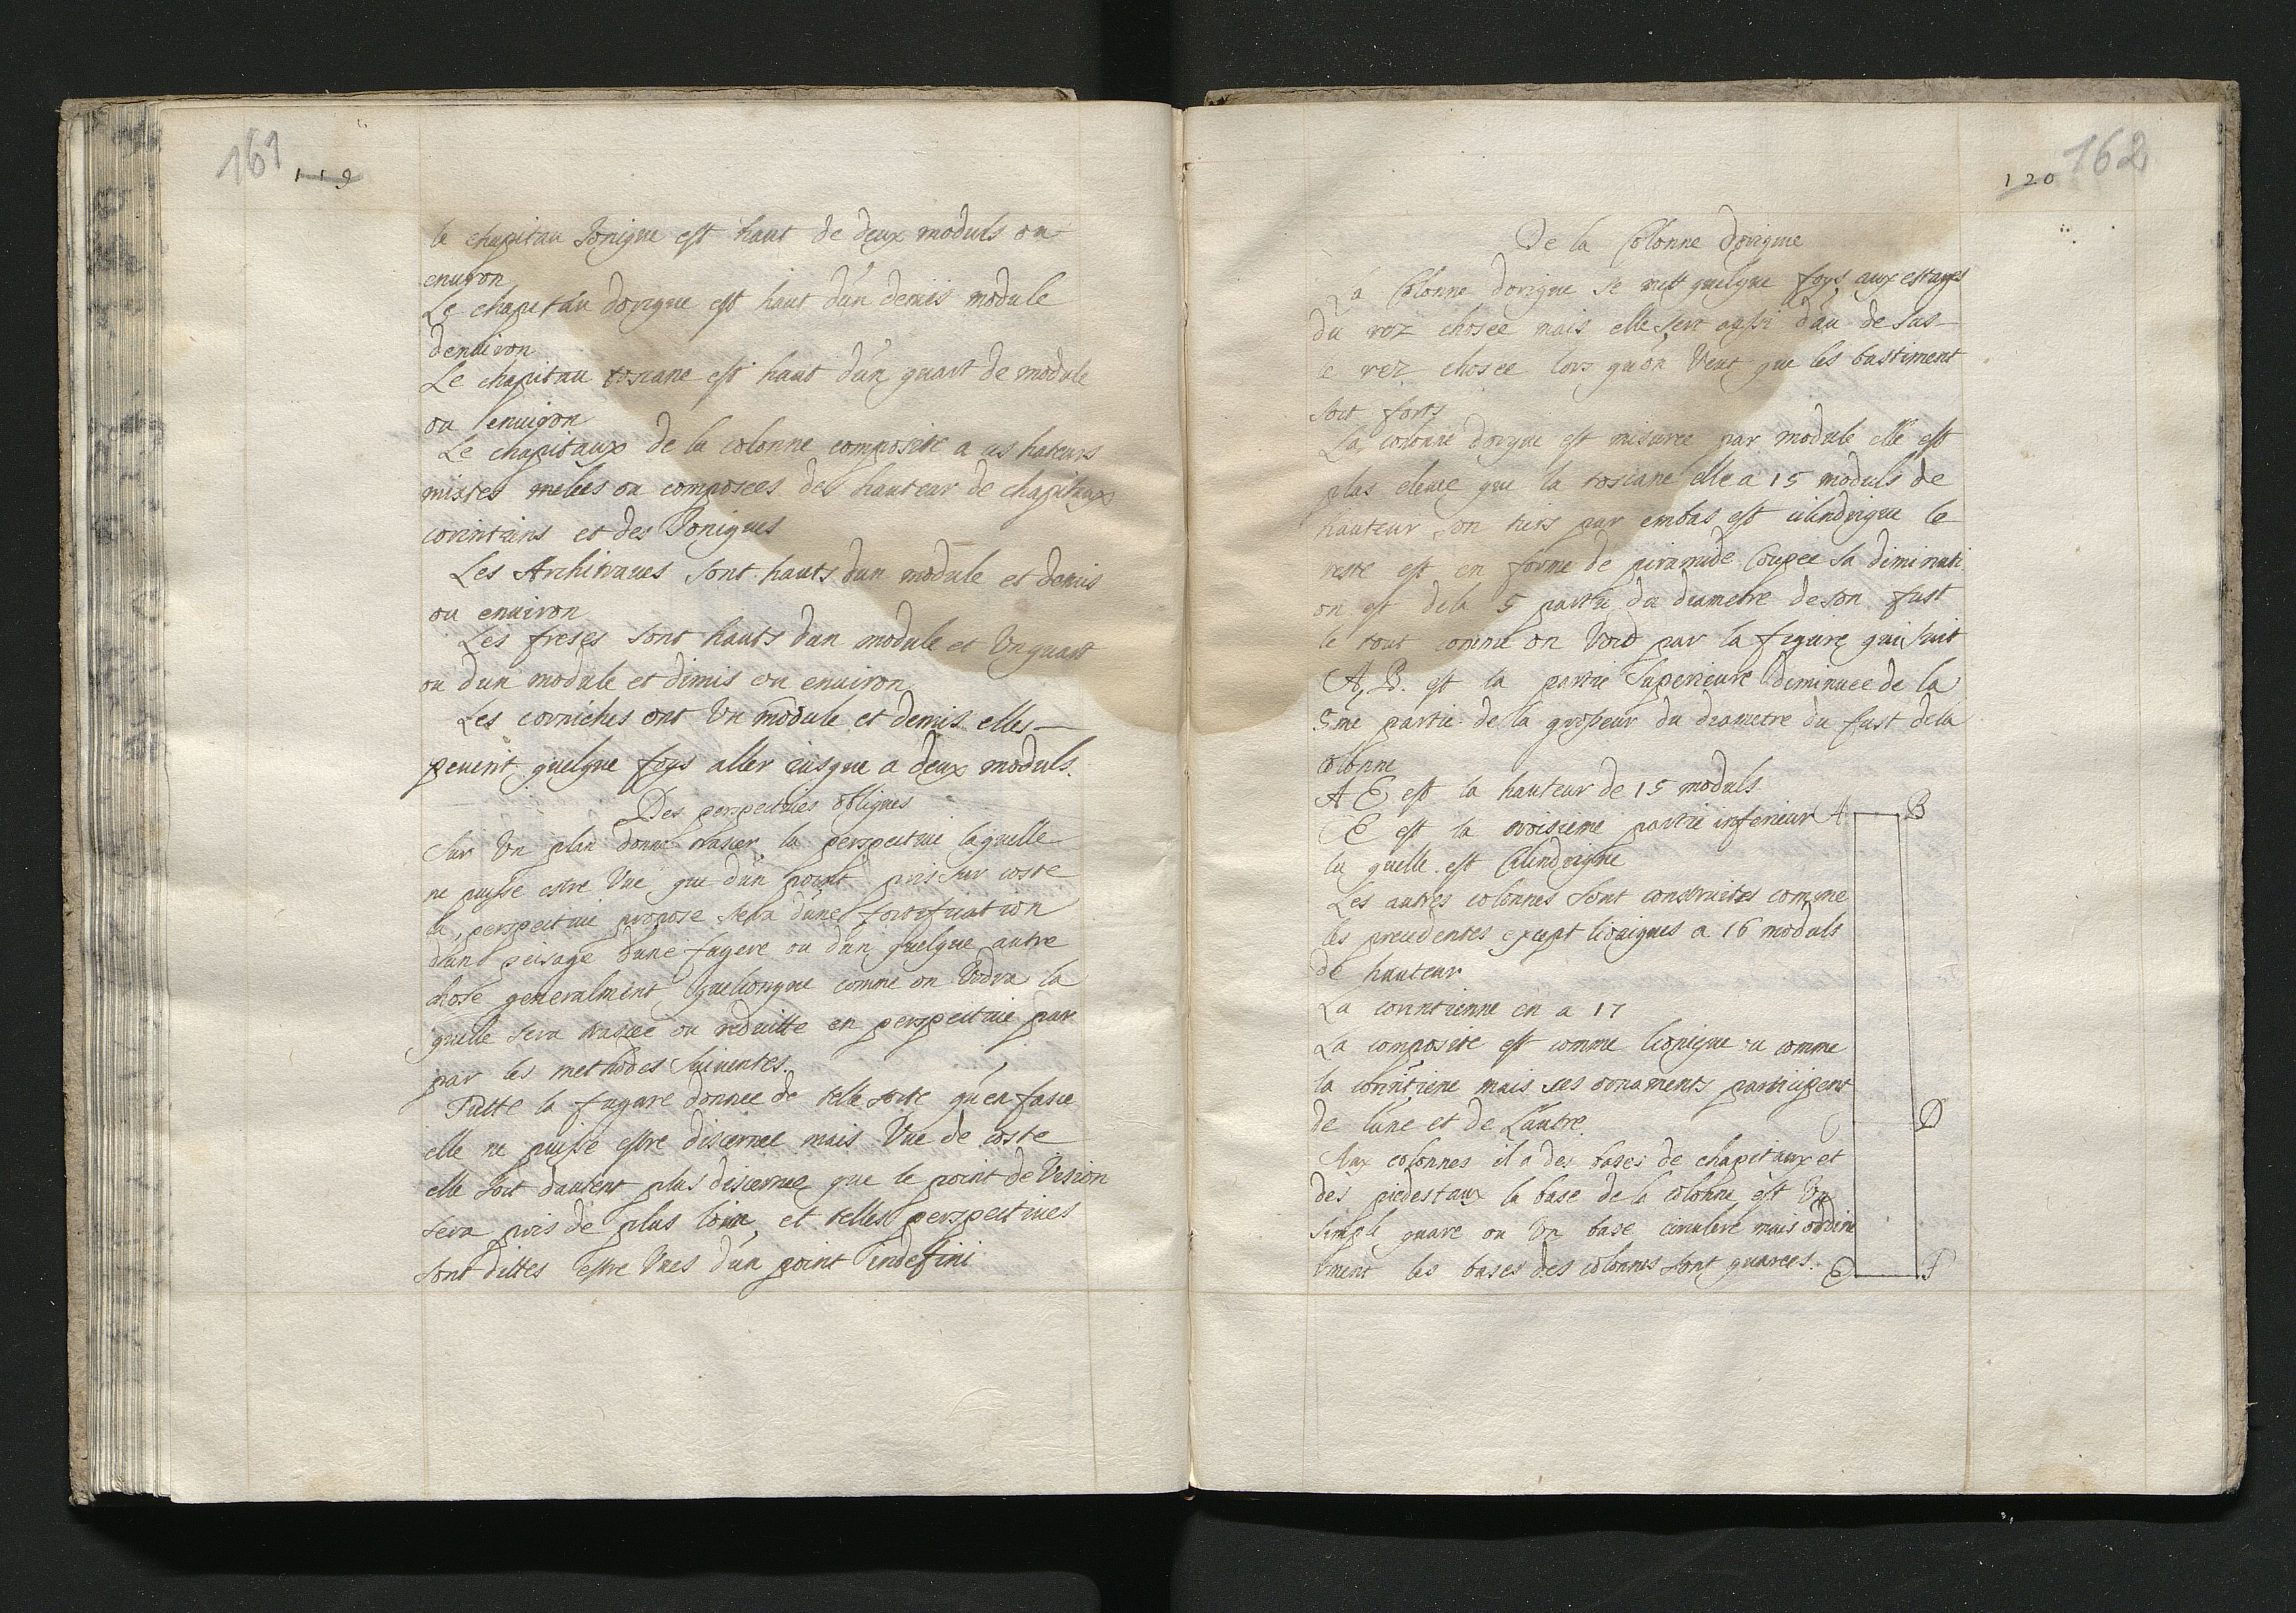 161
119
le chapitau Ionique est haut de deux moduls ou
enuiron
Le chapitau dorique est haut d'un demis module
denuiron
Le chapitau toscane est haut d'un quart de module
ou enuiron
Le chapitaux de la colonne composite a us hateurs
mixtes melees ou composees des hauteur de chapitaux
corintiens et des Ioniques
Les Architraues sont hauts dun module et demis
ou enuiron
Les freses sont hauts dun module et Un quart
ou dun module et dimis ou enuiron
Les corniches ont Un module et demis elles
peuent quelque foys aller iusque a deux moduls.
Des perspectiues obliques
Sur Un plan donne trasser la perspectiue laquelle
ne puisse estre Vue que d'un point pris sur coste
la perspectiue propose sera dune fortification
dun peisage dune fugere ou dun quelque autre
chose generalment quelconque comme on Vodra la
quelle sera trasee ou reduitte en perspectiue par
par les methodes suiuentes.
Tutte la fugure donnee de telle sorte qu'en fasie
elle ne puisse estre discernee mais Vue de coste
elle soit dautent plus discernee que le point de Vision
sera pris de plus loin et telles perspectiues
sont dittes estre Vues d'un point indefini
162
120
De la Colonne dorique
La Colonne dorique se mest quelque foys aux estages
du rez chosee mais elle sert aussi d'au de sus
le rez chosee lors quon Veut que les bastiment
soit forts
La colonne dorque est misuree par module elle est
plus eleue que la toscane elle a 15 moduls de
hauteur son tiers par embas est cilindrique le
reste est en forme de piramide Coupee sa diminuti
on est dela 5 partie du diametre de son fust
le tout comme on Void par la figure qui suit
A, B. est la partie Superieure diminuee de la
5me partie de la grosseur du diametre du fust dela
colonne
A E est la hauteur de 15 moduls
E est la troisieme partie inferieur A B
la quelle est Cilindrique
Les autres colonnes sont construites comme
les precedentes exept lionique a 16 moduls
de hauteur
La corintienne en a 17
La composite est comme lionique ou comme
la corintiene mais ses ornaments participent
de lune et de Lautre. C D
Aux colonnes il a des bases de chapitaux et
des piedestaux la base de la colonne est Un
simple quare ou Un base circulere mais ordine
lment les bases des colonnes sont quarees. E F